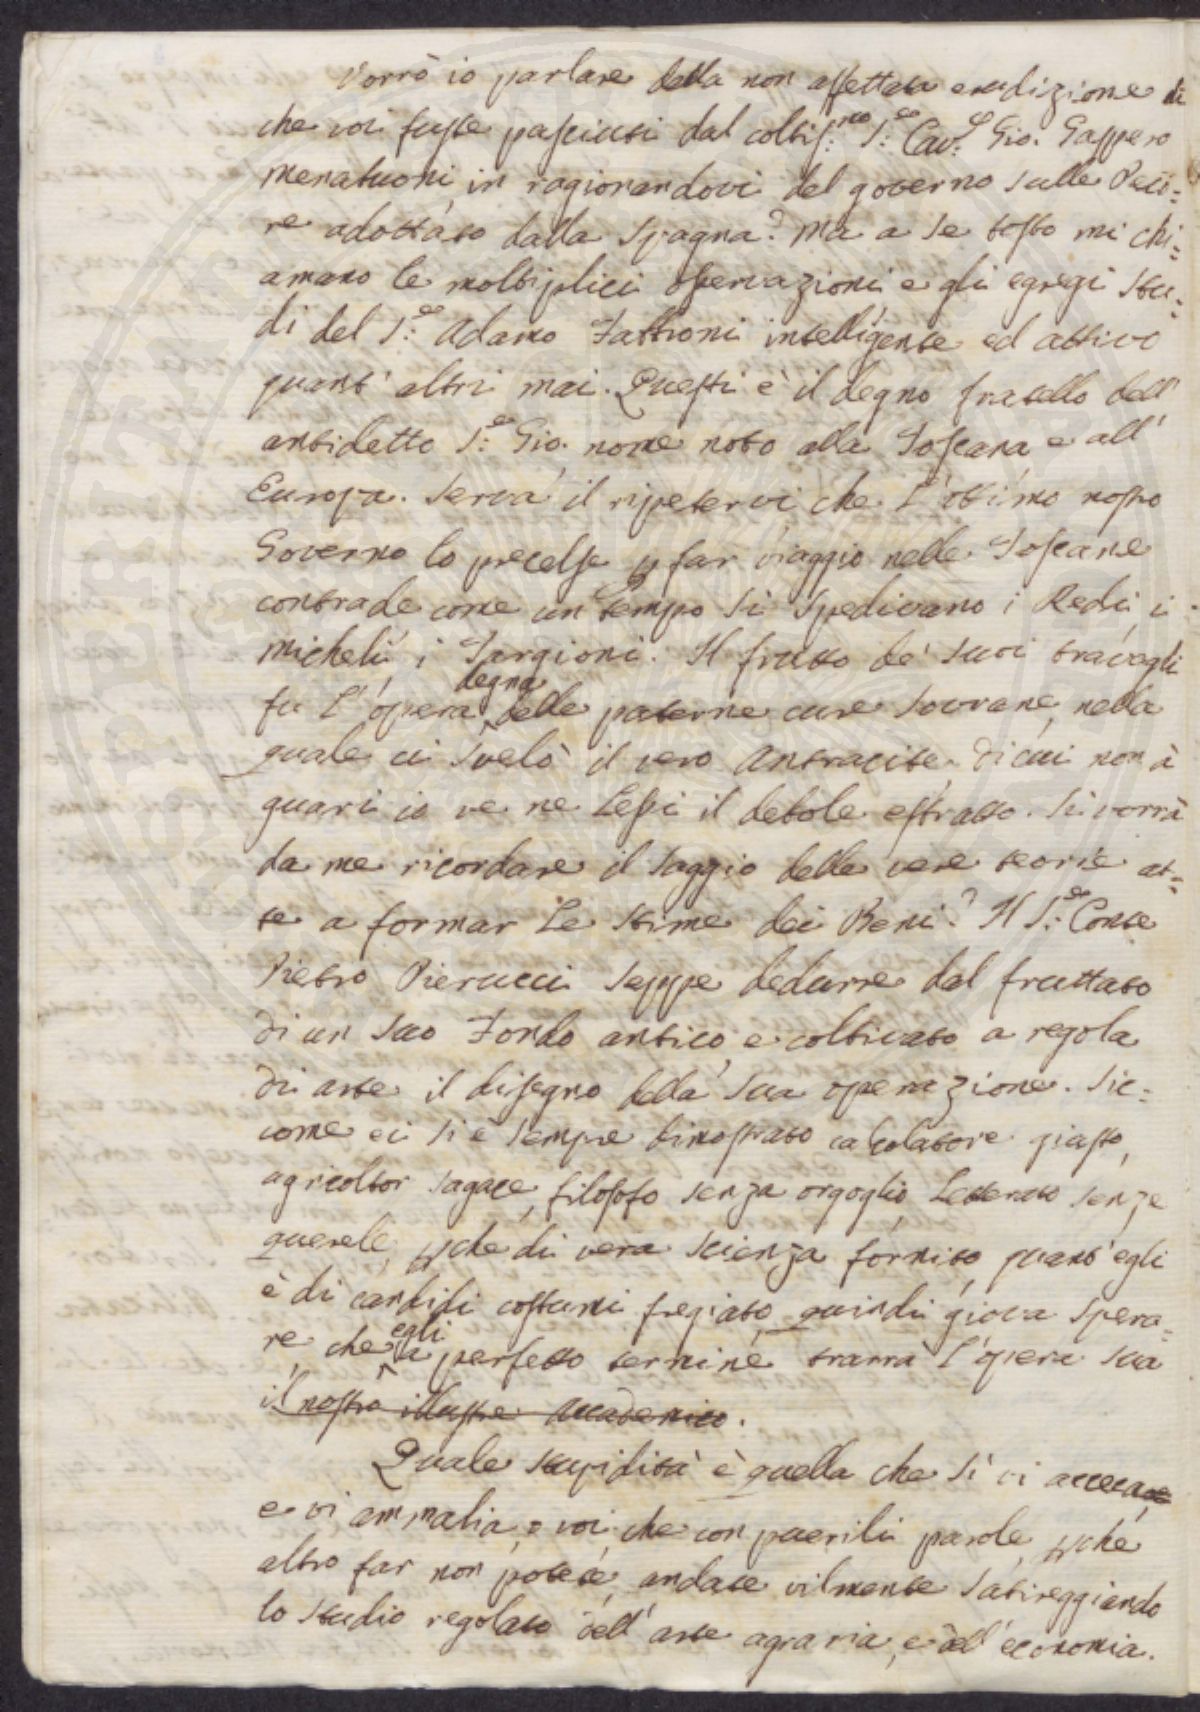 Vorrò io parlare della non affettata erudizione di
che voi fuste pasciuti dal coltiss:mo S:re Cav:e Gio. Gaspero
Menabuoni, in ragionandovi del governo sulle Peco:
re adottato dalla Spagna? Ma a se tosto mi chi:
amano le moltiplici osservazioni e gli egregi stu:
di del S:re Adamo Fabbroni intelligente ed attivo
quant' altri mai. Questi è il degno fratello dell'
antidetto S:re Gio. nome noto alla Toscana e all'
Europa. Serva il ripetervi che l'ottimo nostro
Governo lo prescelse p far viaggio nelle Toscane
contrade come un tempo si spedivano i Redi, i
Micheli, i Targioni. Il frutto de' suoi travagli
fu l'opera degna delle paterne cure sovrane, nella
quale ci svelò il vero Antracite, di cui non à
guari io ve ne lessi il debole estratto. Si vorrà
da me ricordare il saggio delle vere teorie at:
te a formar le stime dei Beni? Il S:re Conte
Pietro Pierucci seppe dedurre dal fruttato
di un suo Fondo antico, e coltivato a regola
di arte il disegno della sua operazione. Sic:
come ei si è sempre dimostrato calcolatore giusto,
agricoltor sagace, filosofo senza orgoglio, Letterato senza
querele, pchè di vera scienza fornito, quant' egli
è di candidi costumi fregiato, quindi giova spera:
re, che egli a perfetto termine trarrà l'opera sua
il nostro illustre Accademico.
Quale stupidità è quella che sì vi acceca,
e vi ammalia, o voi, che con puerili parole, pchè
altro far non potete, andate vilmente satireggiando
lo studio regolato dell' arte agraria, e dell' economia.